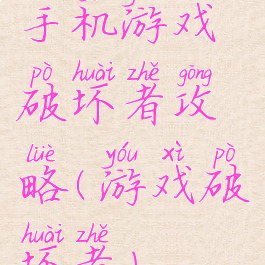 手机游戏
pò huài zhě gōng
破坏者攻
lüè yóu xì pò
略(游戏破
huài zhě
坏者)